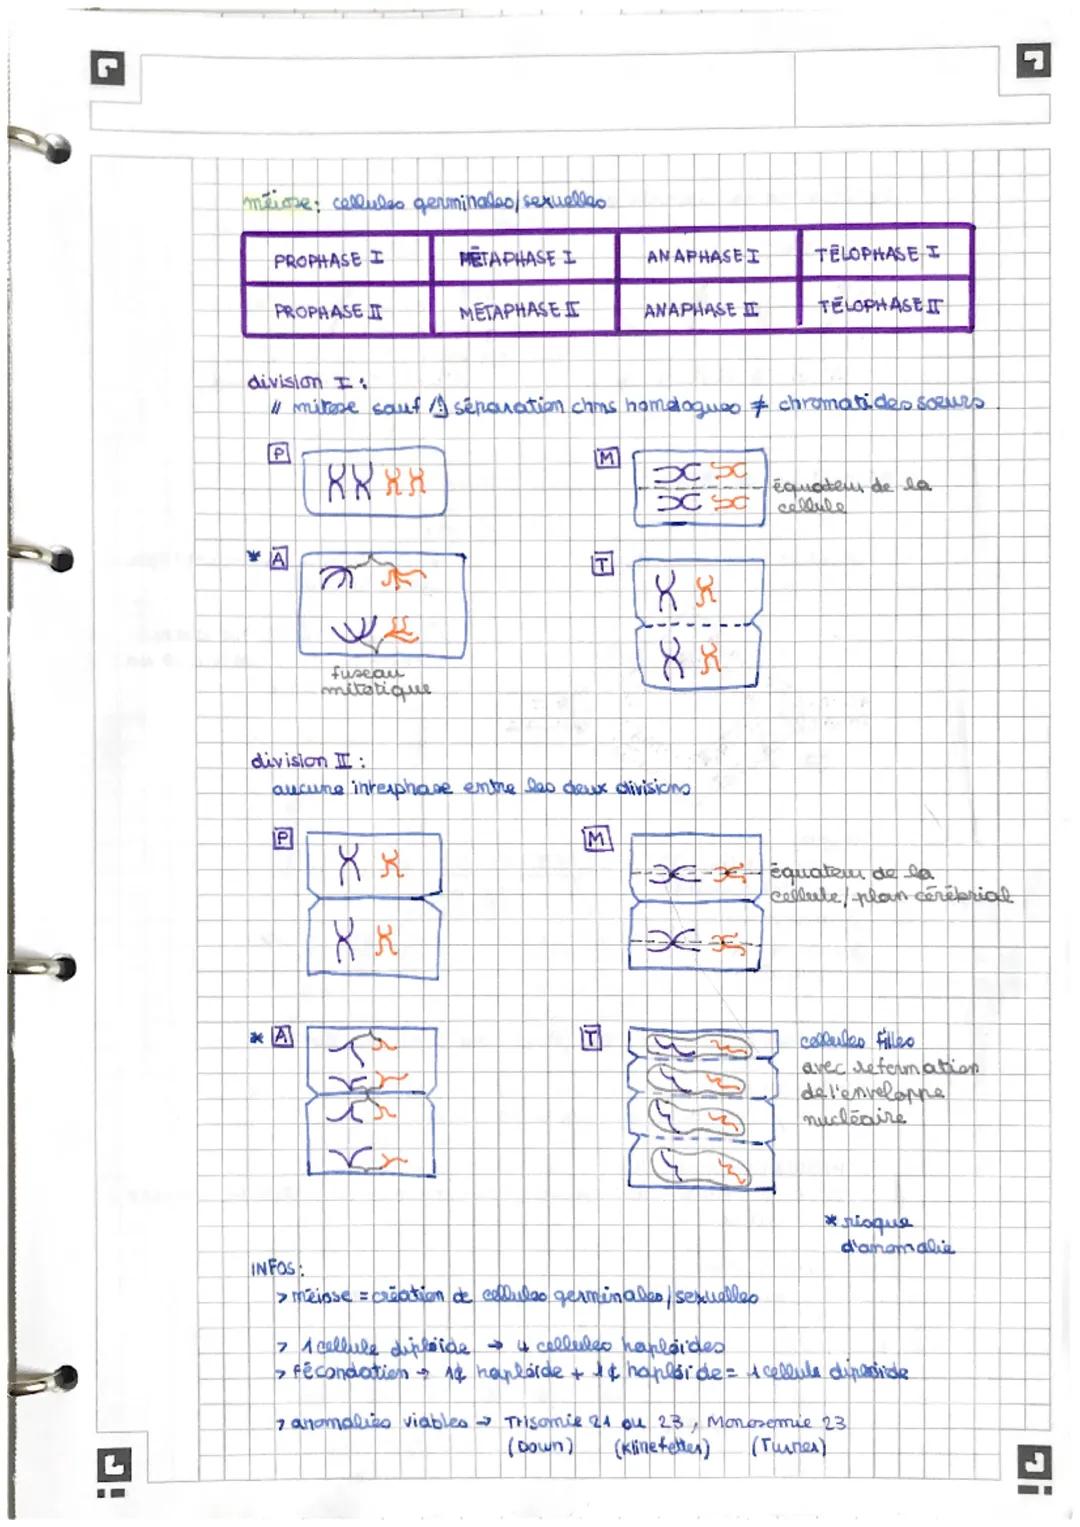 méiose: cellules germinales/sexuelles
PROPHASE I MÉTAPHASE I ANAPHASE I TÉLOPHASE I
PROPHASE II MÉTAPHASE II ANAPHASE II TÉLOPHASE II
division I:
// mitose sauf /!\ séparation chms homologues ≠ chromatides soeurs
P
M
équateur de la
cellule
* A
T
fuseau
mitotique
division II:
aucune interphase entre les deux divisions
P
M
équateur de la
cellule/plan cérébrial
* A
T
cellules filles
avec reformation
de l'enveloppe
nucléaire
* risque
d'anomalie
INFOS:
> méiose = création de cellules germinales/sexuelles
> 1 cellule diploïde → 4 cellules haploïdes
> fécondation → 1¢ haploïde + 1¢ haploïde = 1 cellule diploïde
> anomalies viables → Trisomie 21 ou 23, Monosomie 23
(Down) (Klinefelter) (Turner)